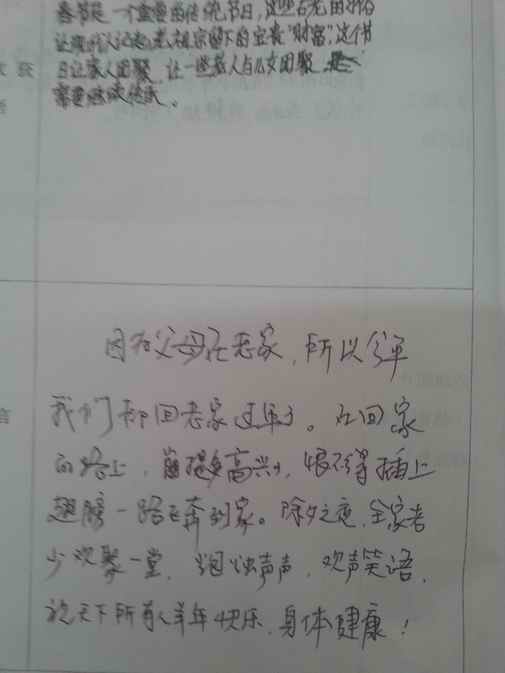 春节是一个重要的传统节日,这些古老的习俗
让我们人记起老祖宗留下的宝贵“财富”,这个节
日让家人团聚,让一些老人与儿女团聚,
需要继续传承。
获
因为父母在老家,所以今年
我们都回老家过年了。在回家
的路上,甭提多高兴,恨不得插上
翅膀一路飞奔到家。除夕之夜,全家老
少欢聚一堂,烟烛声声,欢声笑语,
祝天下所有人羊年快乐,身体健康!